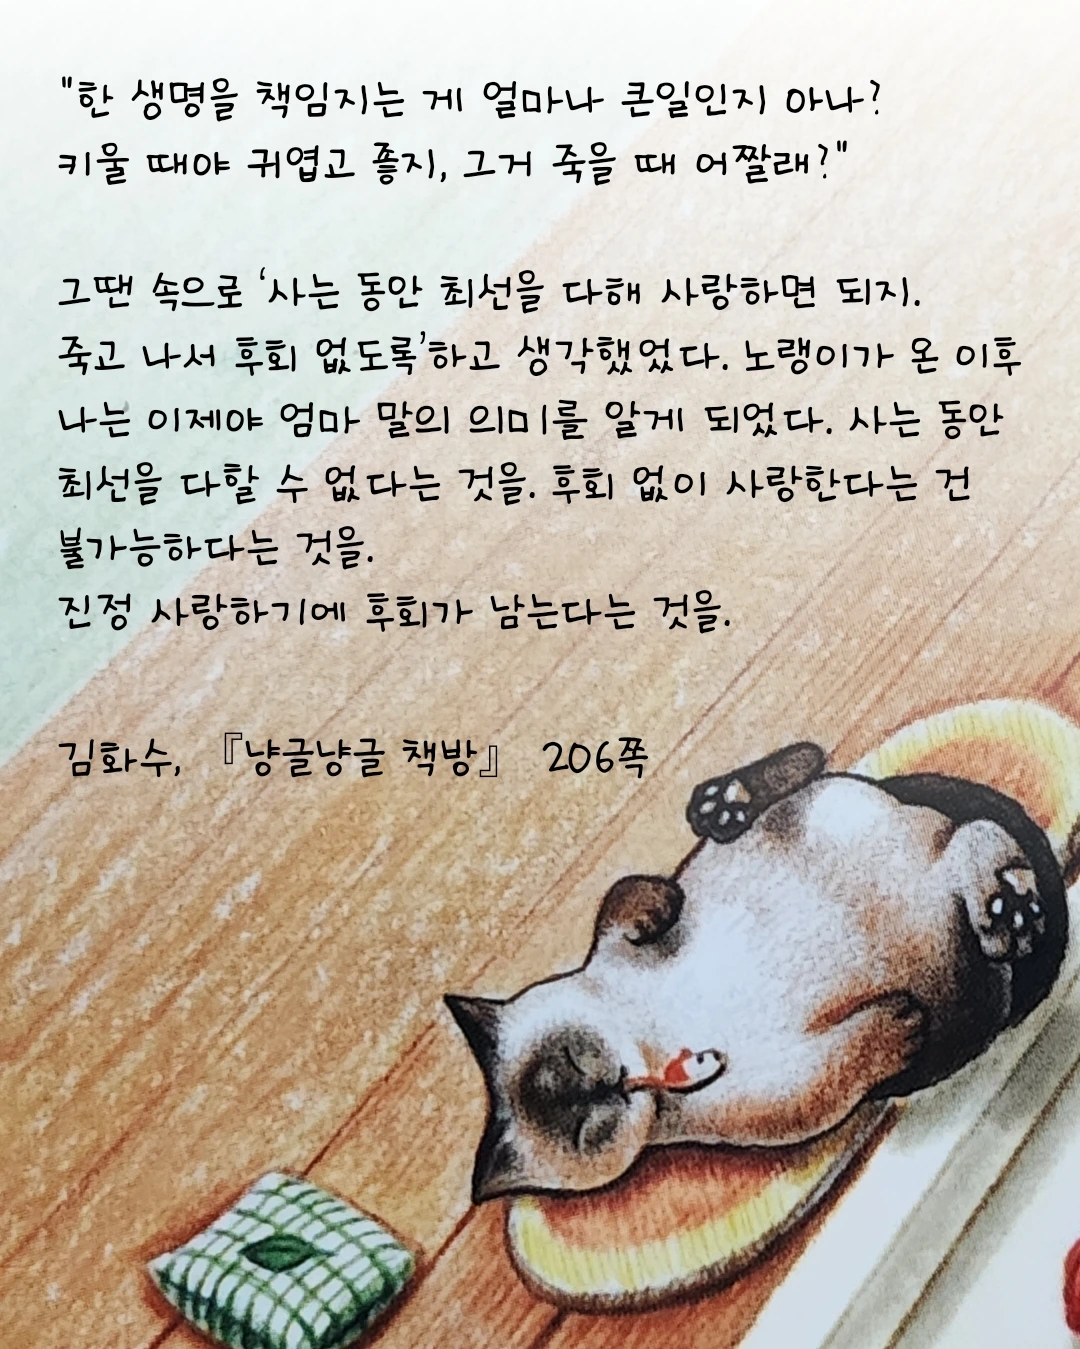 "한 생명을 책임지는 게 얼마나 큰일인지 아나?
키울 때야 귀엽고 좋지, 그거 죽을 때 어짤래?"
그땐 속으로 ‘사는 동안 최선을 다해 사랑하면 되지.
죽고 나서 후회 없도록’하고 생각했었다. 노랭이가 온 이후
나는 이제야 엄마 말의 의미를 알게 되었다. 사는 동안
최선을 다할 수 없다는 것을. 후회 없이 사랑한다는 건
불가능하다는 것을.
진정 사랑하기에 후회가 남는다는 것을.
김화수, 『냥글냥글 책방』 206쪽